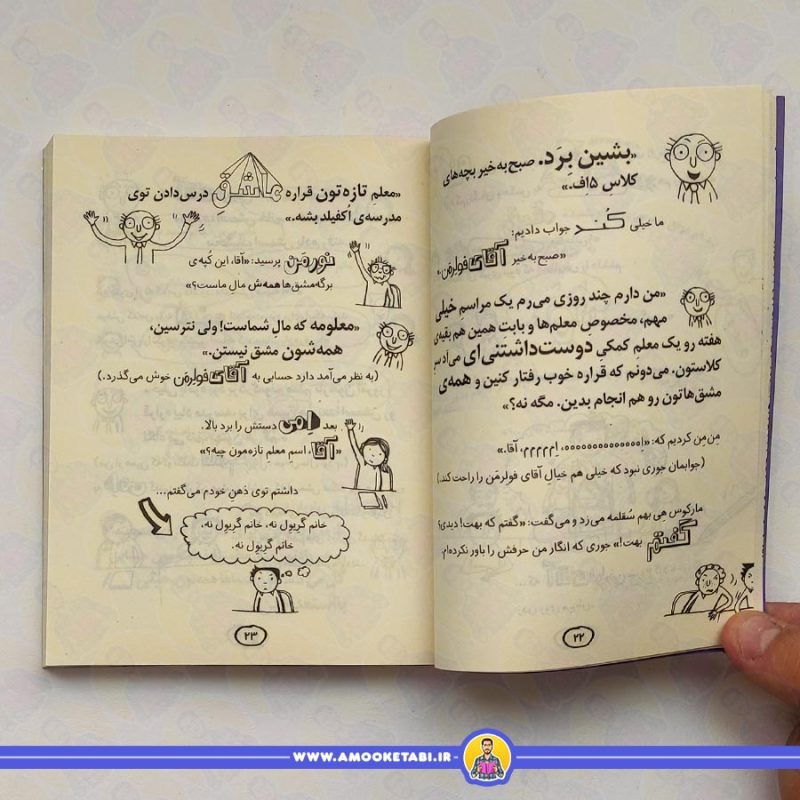 «بشین بِرَد. صبح‌به‌خیر بچه‌های
کلاسِ ۵اِف.»
ما خیلی کُند جواب دادیم:
«صبح‌به‌خیر آقای فولِرمَن.»
«من دارم چند روزی می‌رم یک مراسمِ خیلی
مهم، مخصوص معلم‌ها و بابت همین هم بقیه‌ی
هفته رو یک معلم کمکیِ دوست‌داشتنی‌ای می‌آد سرِ
کلاستون. می‌دونم که قراره خوب رفتار کنین و همه‌ی
مشق‌هاتون رو هم انجام بدین. مگه نه؟»
مِن‌مِن کردیم که: آقا.»
(جوابمان جوری نبود که خیلی هم خیال آقای فولرمَن را راحت کند.)
مارکوس هِی بهم سُقلمه می‌زد و می‌گفت: «گفتم که بهت! دیدی؟
گفتم بهت!» جوری که انگار من حرفش را باور نکرده‌ام.
۲۲
«معلمِ تازه‌تون قراره عاشقِ درس‌دادن توی
مدرسه‌ی اُکفیلد بشه.»
نورمَن پرسید: «آقا، این کُپه‌ی
برگه‌مشق‌ها همه‌ش مالِ ماست؟»
«معلومه که مالِ شماست! ولی نترسین،
همه‌شون مشق نیستن.»
(به نظر می‌آمد دارد حسابی به آقای فولِرمَن خوش می‌گذرد.)
بعد اِمی دستش را برد بالا.
«آقا، اسمِ معلمِ تازه‌مون چیه؟»
داشتم توی ذهنِ خودم می‌گفتم...
خانم گریوِل نه، خانم گریوِل نه،
خانم گریوِل نه.
۲۳
WWW.AMOOKETABI.IR